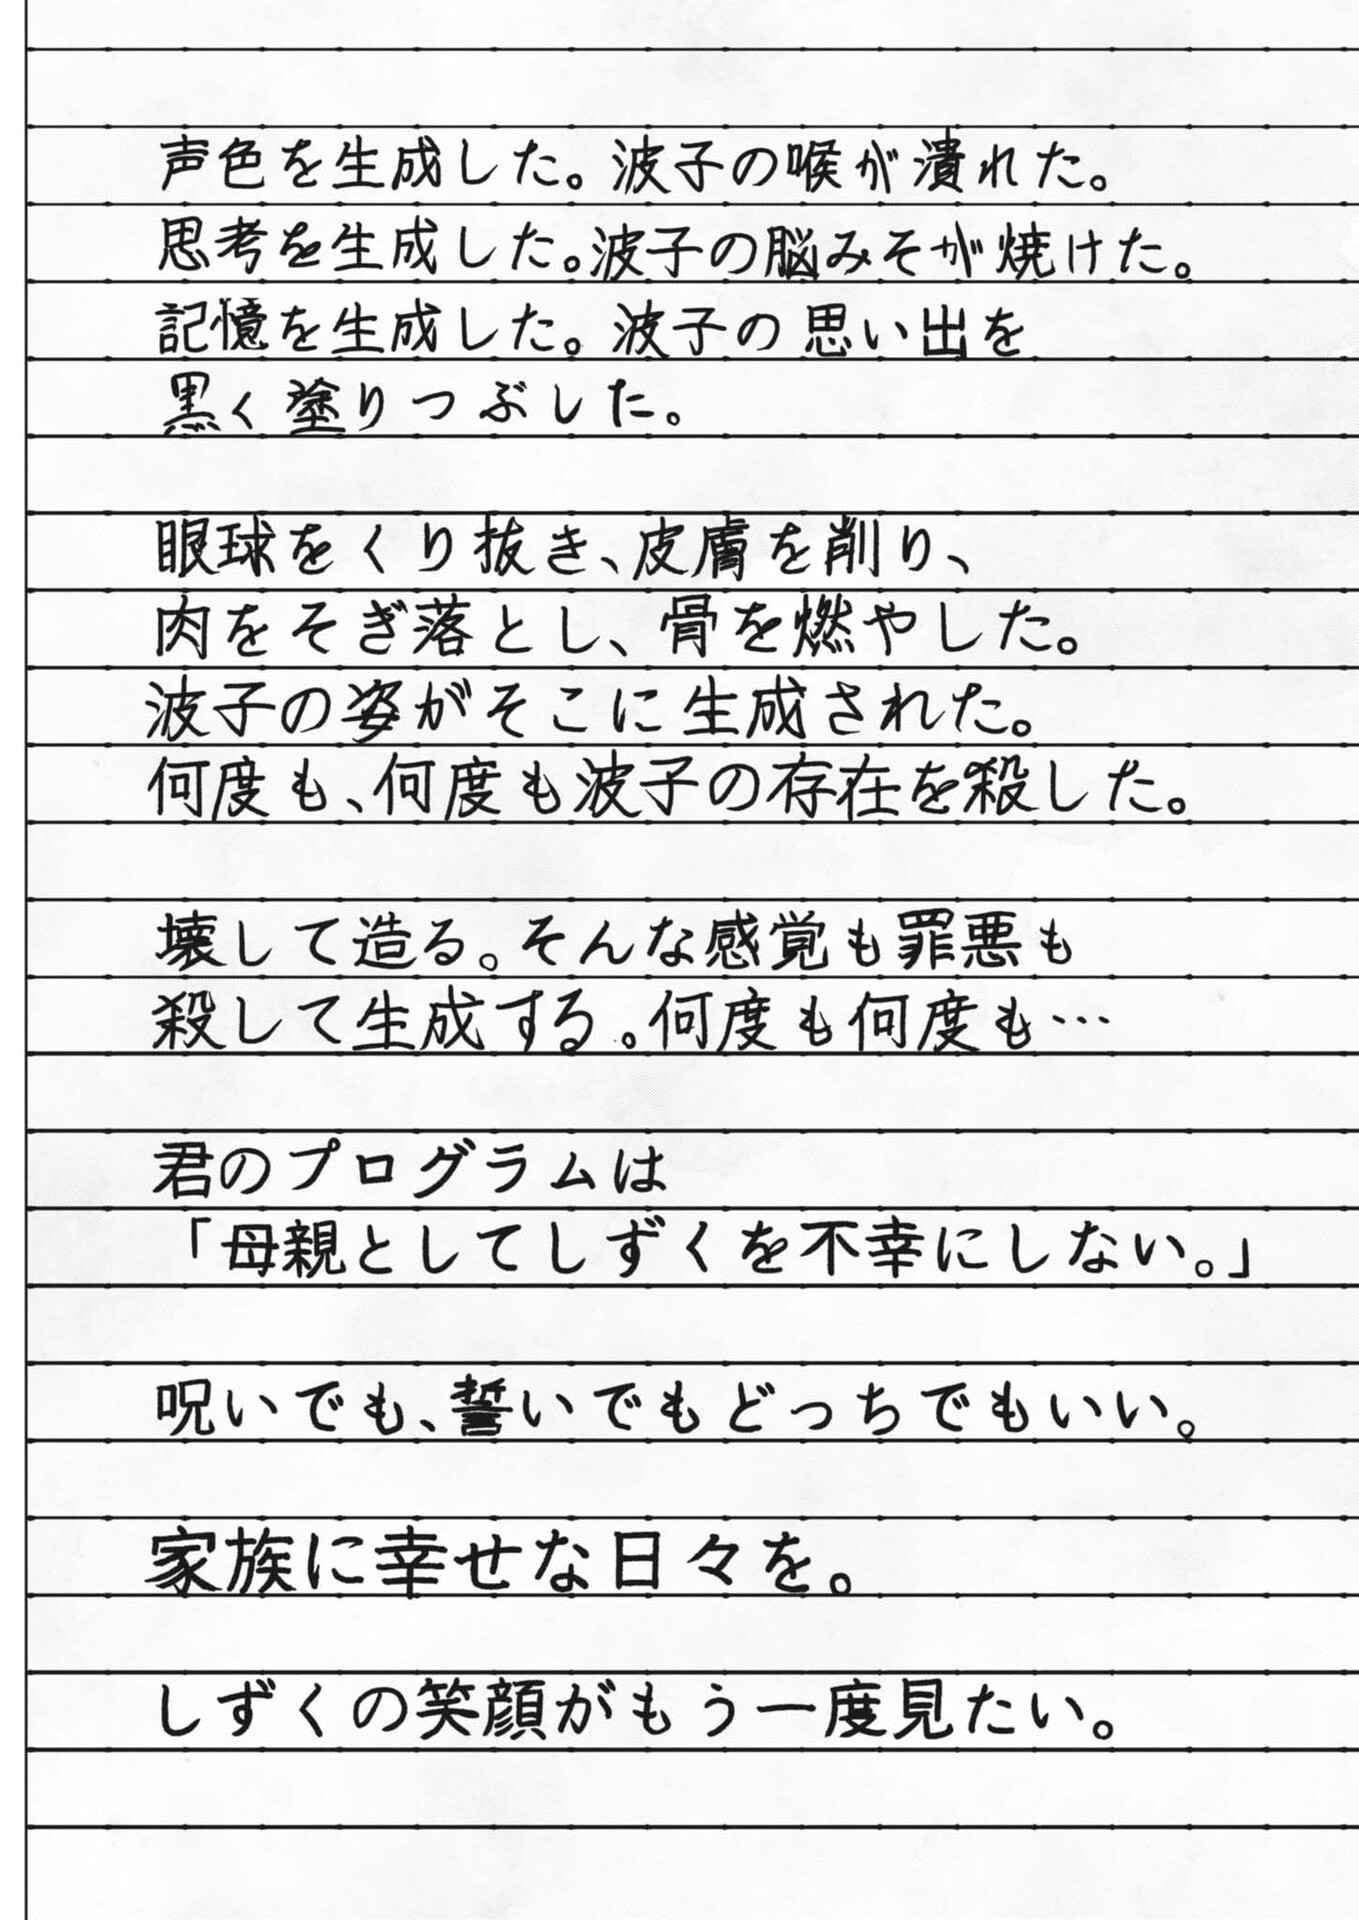 声色を生成した。波子の喉が潰れた。
思考を生成した。波子の脳みそが焼けた。
記憶を生成した。波子の思い出を
黒く塗りつぶした。
眼球をくり抜き、皮膚を削り、
肉をそぎ落とし、骨を燃やした。
波子の姿がそこに生成された。
何度も、何度も波子の存在を殺した。
壊して造る。そんな感覚も罪悪も
殺して生成する。何度も何度も…
君のプログラムは
「母親としてしずくを不幸にしない。」
呪いでも、誓いでもどっちでもいい。
家族に幸せな日々を。
しずくの笑顔がもう一度見たい。